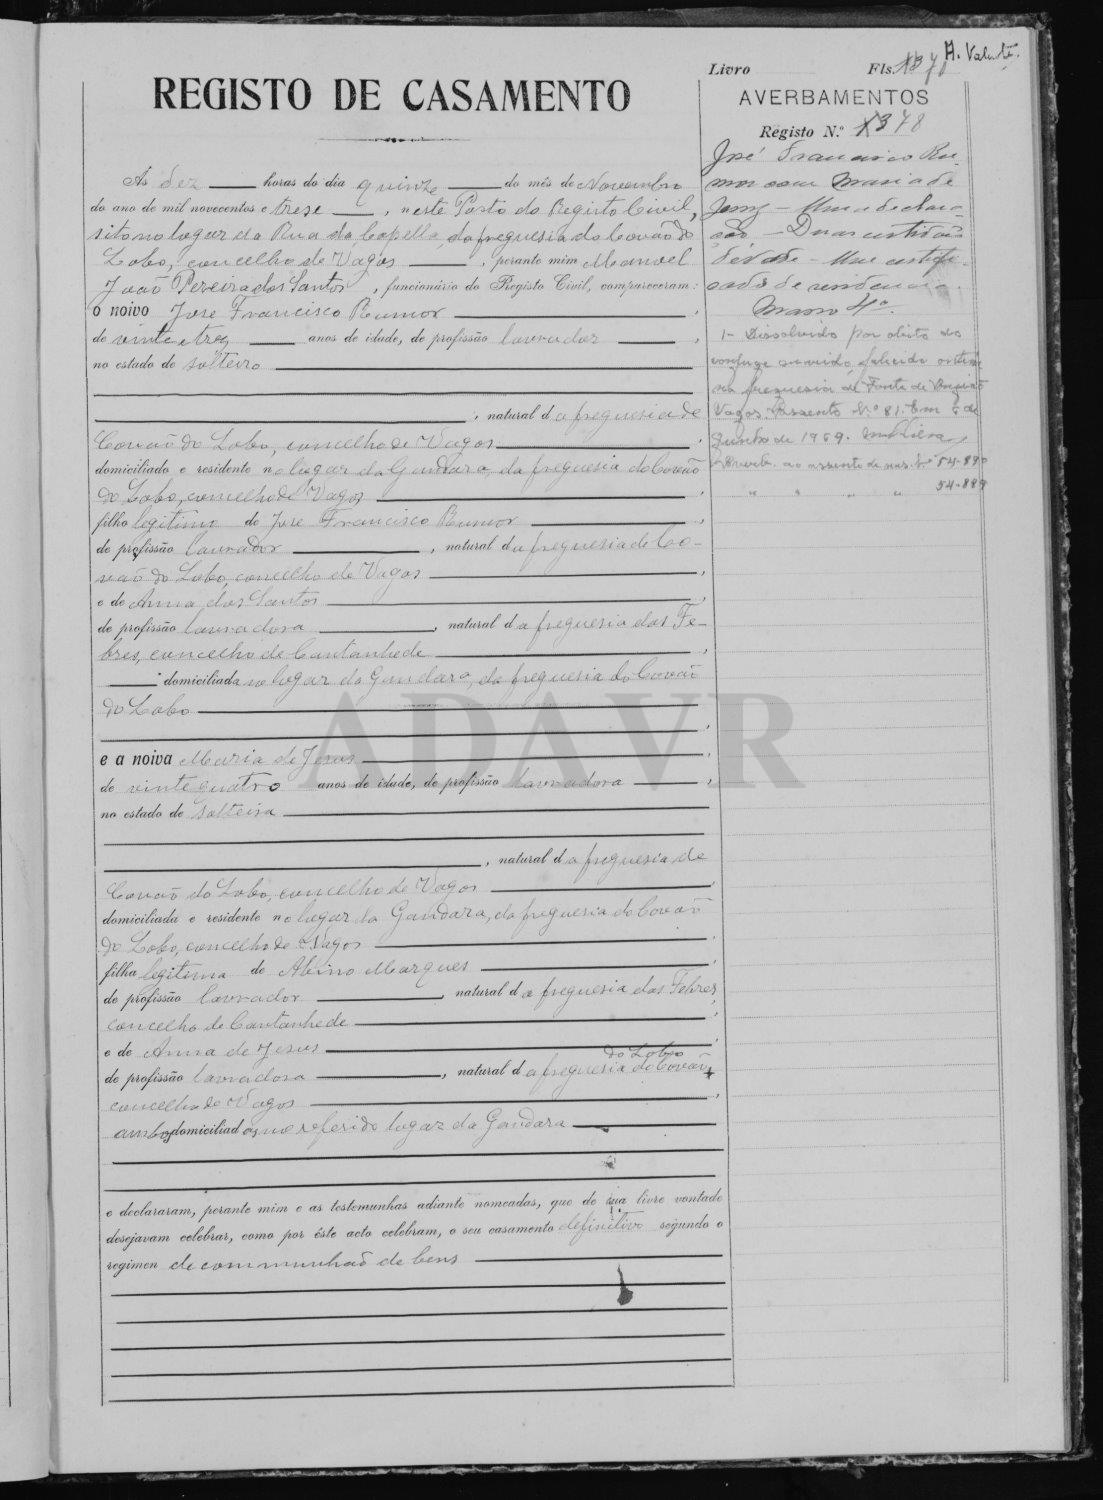 H. Valente.
Livro Fls. 370
REGISTO DE CASAMENTO
AVERBAMENTOS
Registo N.º 378
Ás dez horas do dia quinze do mês de Novembro
do ano de mil novecentos e trese, neste Posto do Registo Civil,
sito no logar da Rua da Capella, da freguesia do Covão do
Lobo, concelho de Vagos, perante mim Manoel
João Pereira dos Santos, funcionário do Registo Civil, compareceram:
o noivo Jose Francisco Rumor
de vinte e tres anos de idade, de profissão lavrador,
no estado de solteiro
, natural da freguesia de
Covão do Lobo, concelho de Vagos,
domiciliado e residente no logar da Gandara, da freguesia do Covão
do Lobo, concelho de Vagos,
filho legitimo de Jose Francisco Rumor,
de profissão lavrador, natural da freguesia de Co-
vão do Lobo, concelho de Vagos,
e de Anna dos Santos,
de profissão lavradora, natural da freguesia das Fe-
bres, concelho de Cantanhede,
domiciliada no logar da Gandara, da freguesia do Covão
do Lobo
,
e a noiva Maria de Jesus,
de vinte quatro anos de idade, de profissão lavradora,
no estado de solteira
, natural da freguesia de
Covão do Lobo, concelho de Vagos,
domiciliada e residente no logar da Gandara, da freguesia do Covão
do Lobo, concelho de Vagos,
filha legitima de Albino Marques,
de profissão lavrador, natural da freguesia das Febres,
concelho de Cantanhede,
e de Anna de Jesus,
do Lobo
de profissão lavradora, natural da freguesia do Covão,
concelho de Vagos,
ambos domiciliados no referido logar da Gandara
e declararam, perante mim e as testemunhas adiante nomeadas, que de sua livre vontade
desejavam celebrar, como por êste acto celebram, o seu casamento definitivo segundo o
regimen de communhão de bens
José Francisco Ru-
mor com Maria de
Jesus - Uma declara-
ção - Duas certidões
d'edade - Um certifi-
cado de residencia.
Masso 4º.
1- Dissolvido por obito do
conjuge marido, falecido
na freguesia de Fonte de Angião
Vagos. Assento Nº 81. Em 5 de
Junho de 1969.
ao assento de nas. Nº 54-890
" " " " 54-889
ADAVR